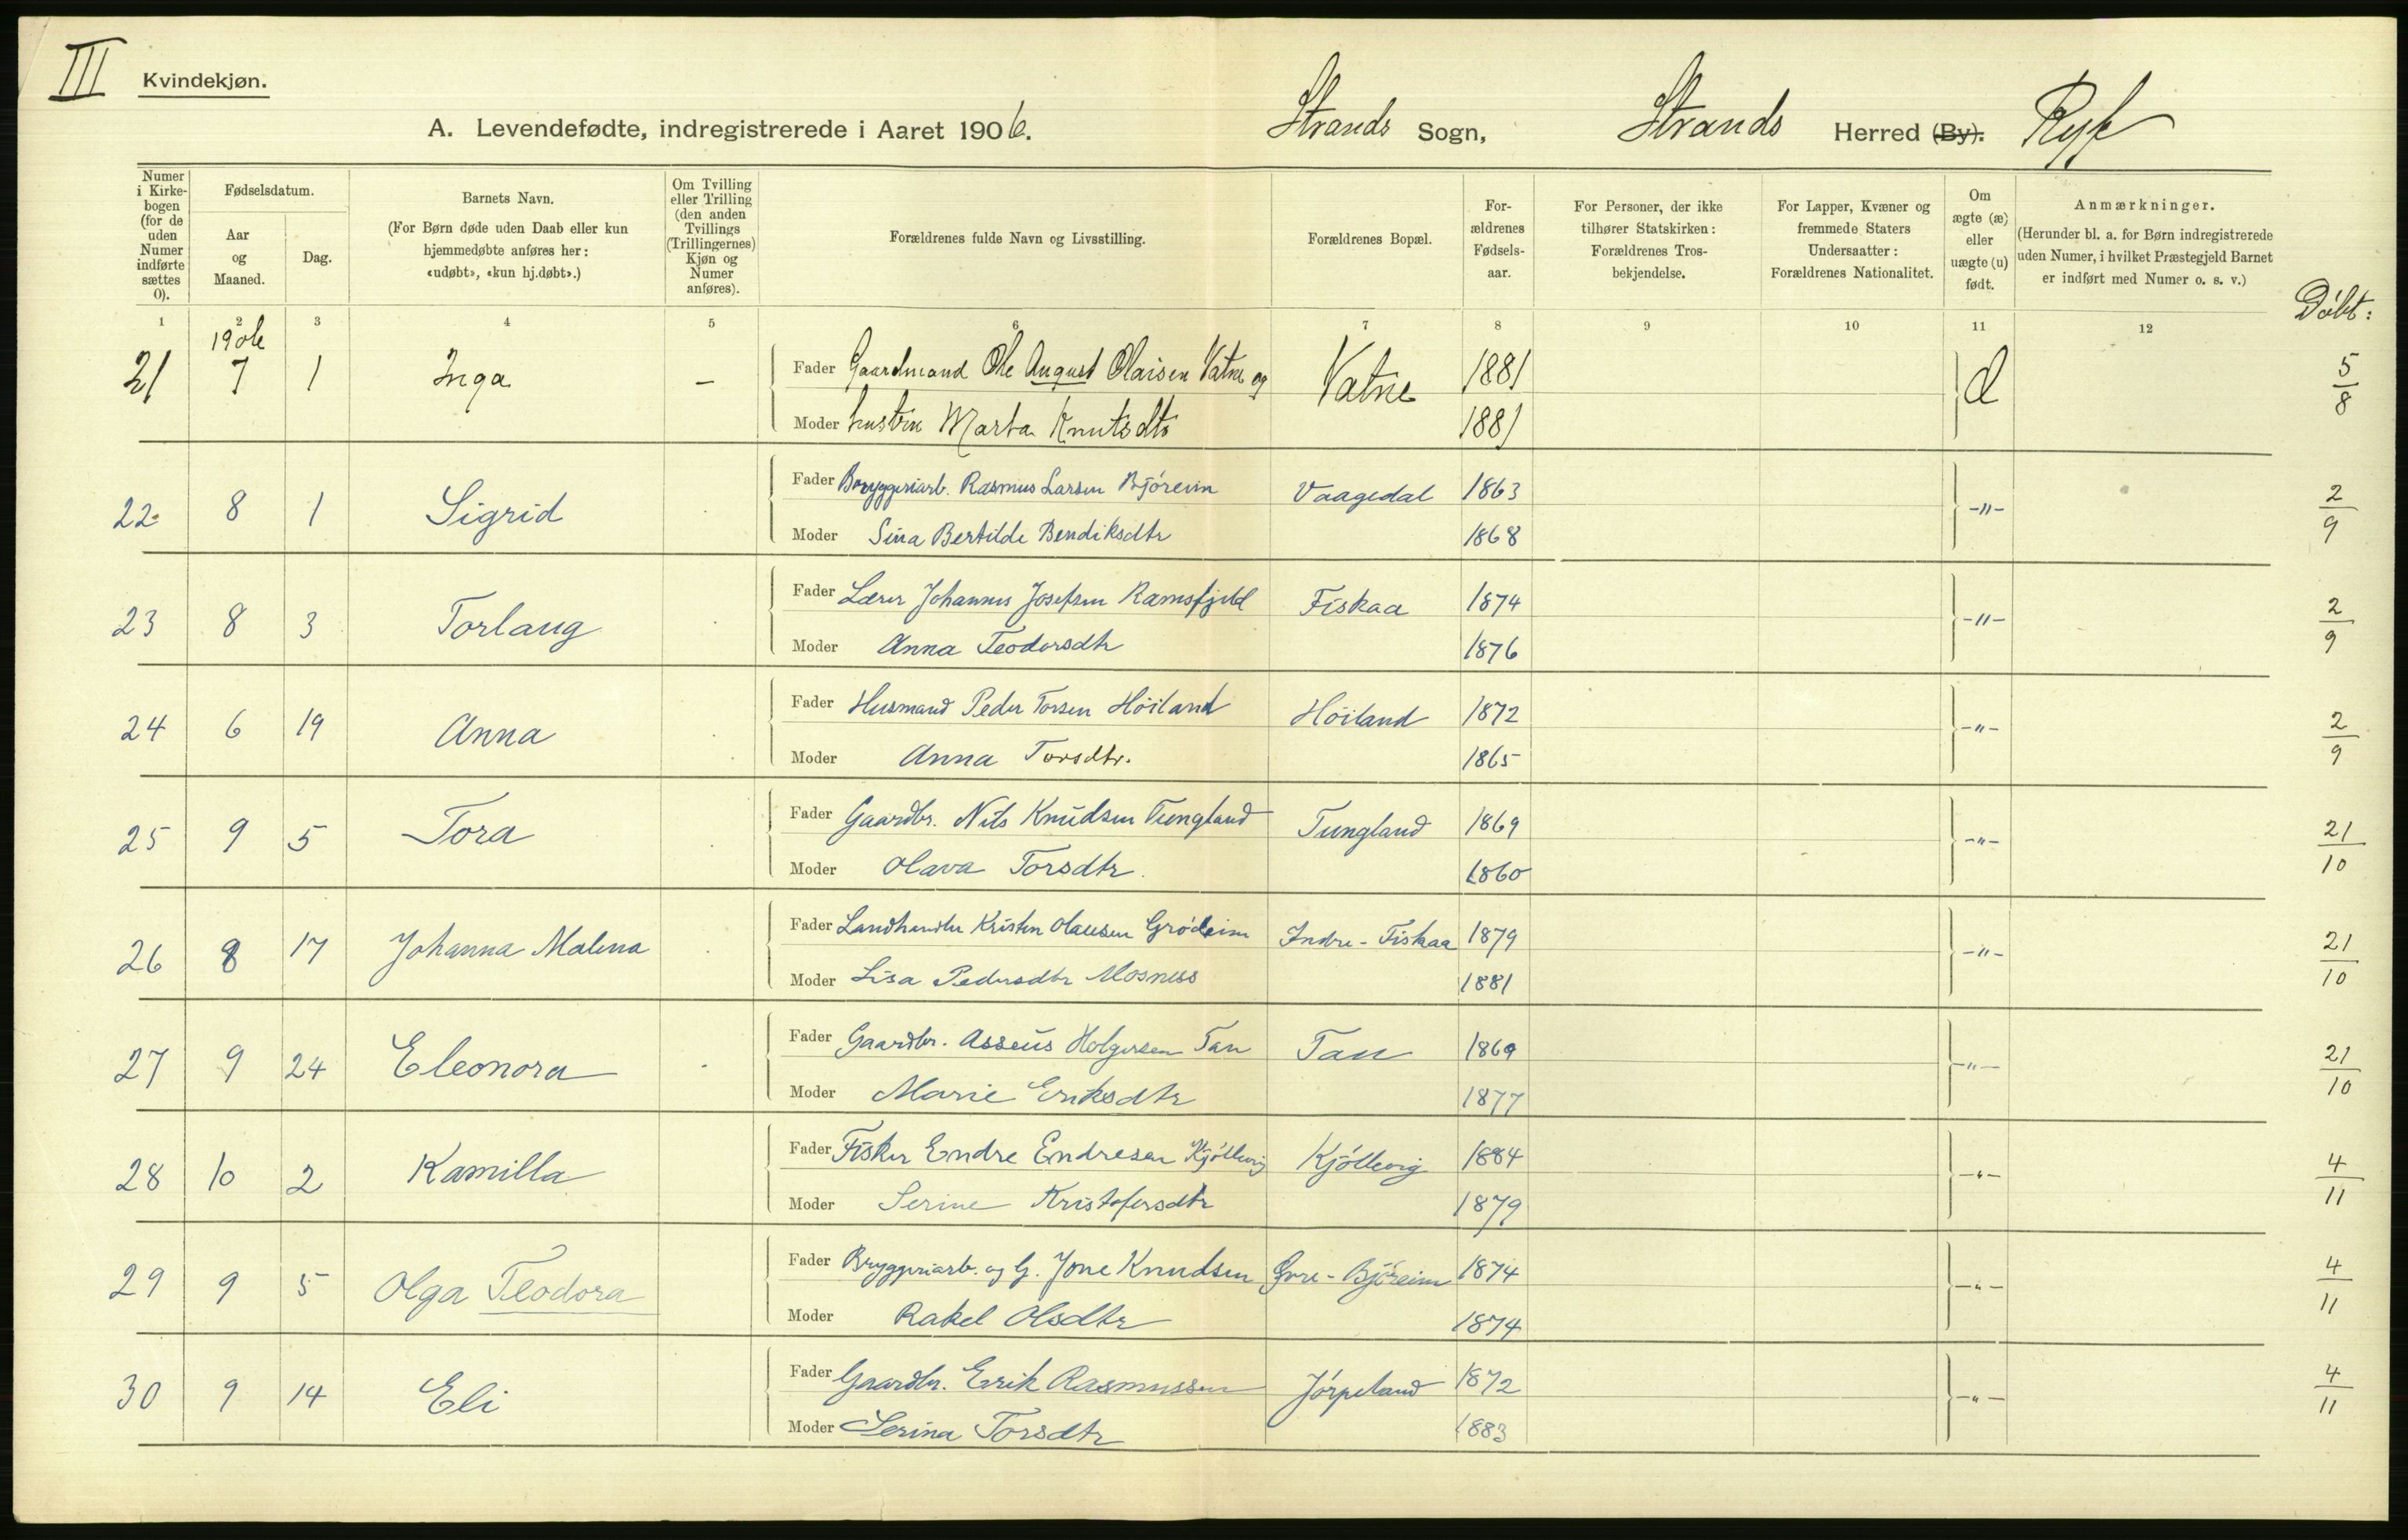 III Kvindekjøn.
A. Levendefødte, indregistrerede i Aaret 1906. Strands Sogn, Strands Herred (By). Ryf
Numer i Kirkebogen (for de uden Numer indførte sættes 0).
Fødselsdatum.
Aar og Maaned.
Dag.
Barnets Navn.
(For Børn døde uden Daab eller kun hjemmedøbte anføres her: «udøbt», «kun hj.døbt».)
Om Tvilling eller Trilling (den anden Tvillings (Trillingernes) Kjøn og Numer anføres).
Forældrenes fulde Navn og Livsstilling.
Forældrenes Bopæl.
Forældrenes Fødselsaar.
For Personer, der ikke tilhører Statskirken: Forældrenes Trosbekjendelse.
For Lapper, Kvæner og fremmede Staters Undersaatter: Forældrenes Nationalitet.
Om ægte (æ) eller uægte (u) født.
Anmærkninger.
(Herunder bl. a. for Børn indregistrerede uden Numer, i hvilket Præstegjeld Barnet er indført med Numer o. s. v.)
Döbt:
1 2 3 4 5 6 7 8 9 10 11 12
1906
21 7 1 Inga – Fader Gaardmand Ole August Olaisen Vatne og Vatne 1881 5/8
Moder hustru Marta Knutsdtr 1881
22 8 1 Sigrid Fader Bryggeriarb. Rasmus Larsen Björeim Vaagedal 1863 -"- 2/9
Moder Sina Bertilde Bendiksdtr 1868
23 8 3 Torlaug Fader Lærer Johannes Josefsen Ramsfjeld Fiskaa 1874 -"- 2/9
Moder Anna Teodorsdtr 1876
24 6 19 Anna Fader Husmand Peder Torsen Höiland Höiland 1872 -"- 2/9
Moder Anna Torsdtr. 1865
25 9 5 Tora Fader Gaardbr. Nils Knudsen Tungland Tungland 1869 -"- 21/10
Moder Olava Torsdtr. 1860
26 8 17 Johanna Malena Fader Landhandler Kristen Olausen Grödeim Indre-Fiskaa 1879 -"- 21/10
Moder Lisa Pedersdtr Mosness 1881
27 9 24 Eleonora Fader Gaardbr. Asseus Holgersen Tau Tau 1869 -"- 21/10
Moder Marie Eriksdtr 1877
28 10 2 Kamilla Fader Fisker Endre Endresen Kjöllevig Kjöllevig 1884 -"- 4/11
Moder Serine Kristofersdtr 1879
29 9 5 Olga Teodora Fader Bryggeriarb. og G. Jone Knudsen Övre-Björeim 1874 -"- 4/11
Moder Rakel Olsdtr 1874
30 9 14 Eli Fader Gaardbr. Erik Rasmussen Jörpeland 1872 -"- 4/11
Moder Serina Torsdtr 1883